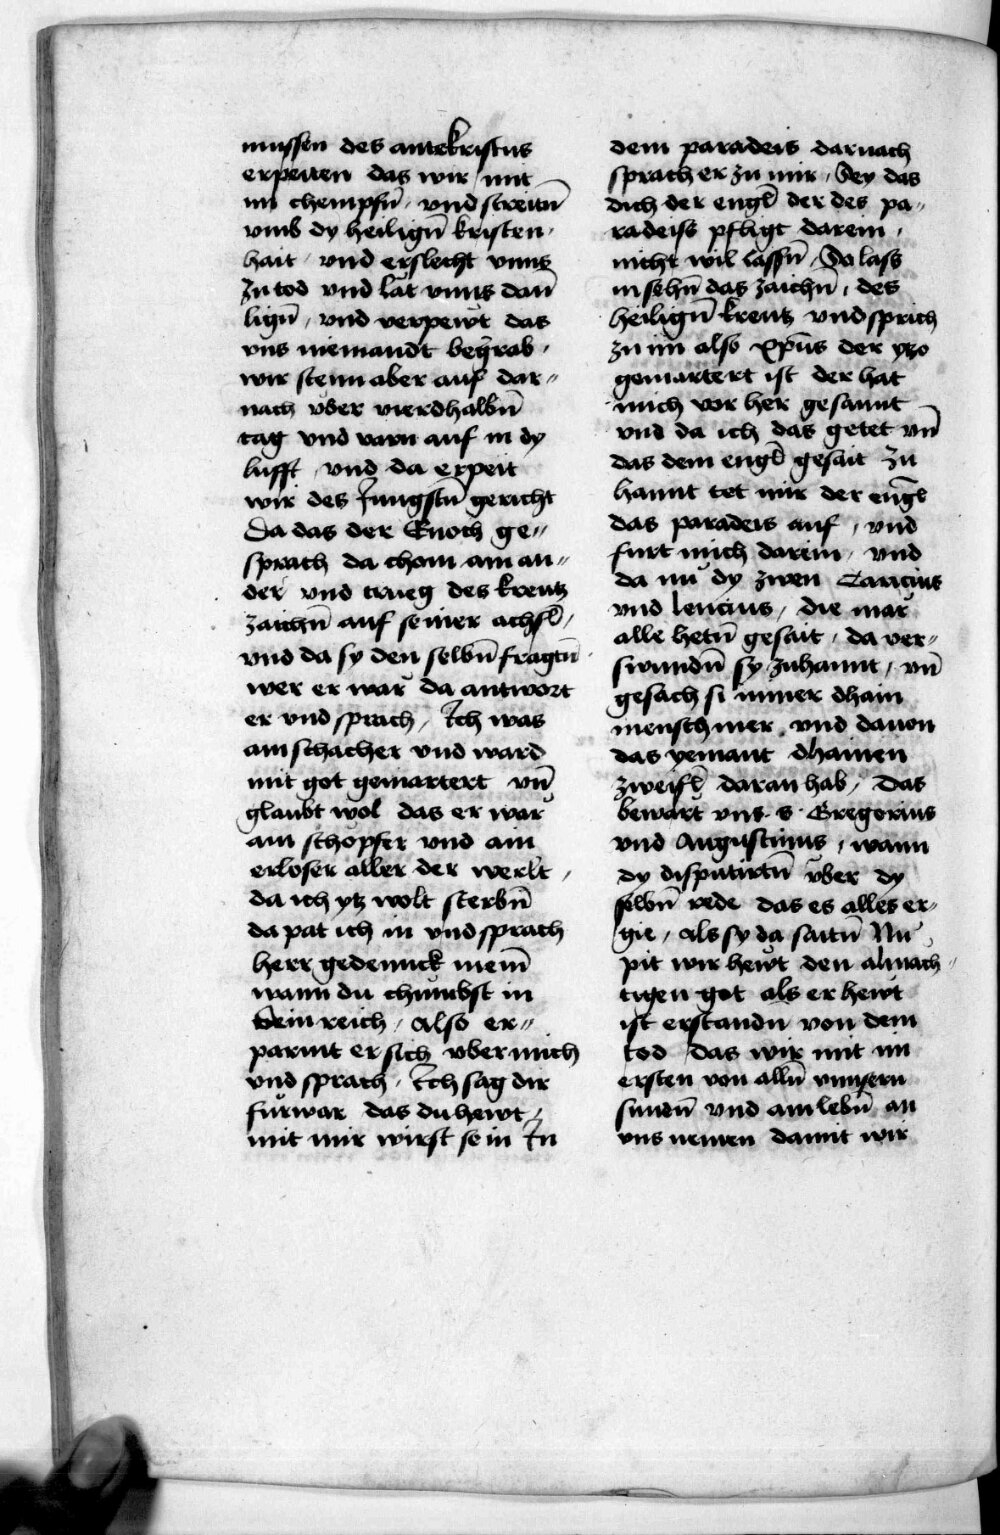 mussen des antekristus
erpeiten das wir mit
im chempfn̄ · vnd streitn̄
vmb dy heilign̄ kristen ·
hait · vnd erslecht vnns
zu tod vnd lat vnns dan̄
lign̄ , vnd verpewt das
vns niemandt begrab ·
wir stenn aber auf dar〃
nach vber vierdhalbn̄
tag vnd varn auf in dy
lufft , vnd da erpeit
wir des Jungstn̄ gericht
Da das der Enoch ge〃
sprach da chom am an〃
der vnd trueg des kreutz
zaichn̄ auf seiner achsl̄ ,
vnd da sy den selbn̄ fragtn̄
wer er war da antwort
er vnd sprach , Ich was
ain schacher vnd ward
mit got gemartert vn̄
glaubt wol das er war
ain schopfer vnd ain
erloser aller der werlt ,
da ich ytz wolt sterbn̄
da pat ich in vnd sprach
herr gedennck mein̄
wann du chumbst in
dein reich , also er〃
parmt er sich vber mich
vnd sprach , Ich sag dir
fürwar das du hewt ,
mit mir wirst sein In
dem paradeis darnach
sprach er zu mir , Sey das
dich der engl̄ der des pa〃
radeiss pfligt darein ,
nicht wil lassn̄ , So lass
in sehn̄ das zaichn̄ , des
heilign̄ kreutz vnd sprich
zu im also xp̄us der ytzo
gemartert ist der hat
mich vor her gesannt
vnd da ich das getet vn̄
das dem engl̄ gesait zu
hannt tet mir der engl̄
das paradeis auf , vnd
furt mich darein , vnd
da nu dy zwen Caracius
vnd lencius , die mar
alle hetn̄ gesait , da ver〃
swundn̄ sy zuhannt , vn̄
gesach si nimer dhain
mensch mer , vnd dauon
das yemant dhainen
zweifl̄ daran hab , Das
bewart vns · s · Gregorius
vnd Augustinus , wann
dy disputirtn̄ vber dy
selbn̄ rede das es alles er〃
gie , als sy da saitn̄ Nu
pit wir hewt den almach〃
tigen got als er hewt
ist erstandn von dem
tod das wir mit im
ersten von alln̄ vnnsern
sundn̄ vnd ain lebn̄ an
vns nemen damit wir